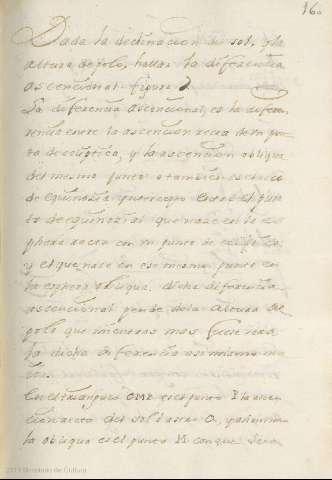 160
Dada la declinacion del sol, y la
altura de polo, hallar la diferencia
ascencional. figura
La diferencia ascencional, es la diferen-
rencia entre la ascencion recta de un pun-
to de ecliptica, y la ascencion obliqua
del mesmo punto o tambien es el arco
de equinozial intercepto entre el pun-
to de equinozial que nace en la es-
phera recta con un punto de ecliptica,
y el que nace con ese mismo punto en
la esphera obliqua. dicha diferencia
ascencional pende de la altura de
polo que mientras mas fuere sera
la dicha diferencia asimismo ma-
ior.
En el triangulo OMR es el punto I la ascen-
cion recta del sol o astro O, y asimismo
la obliqua es el punto M conque sera
2019 Secretaría de Cultura